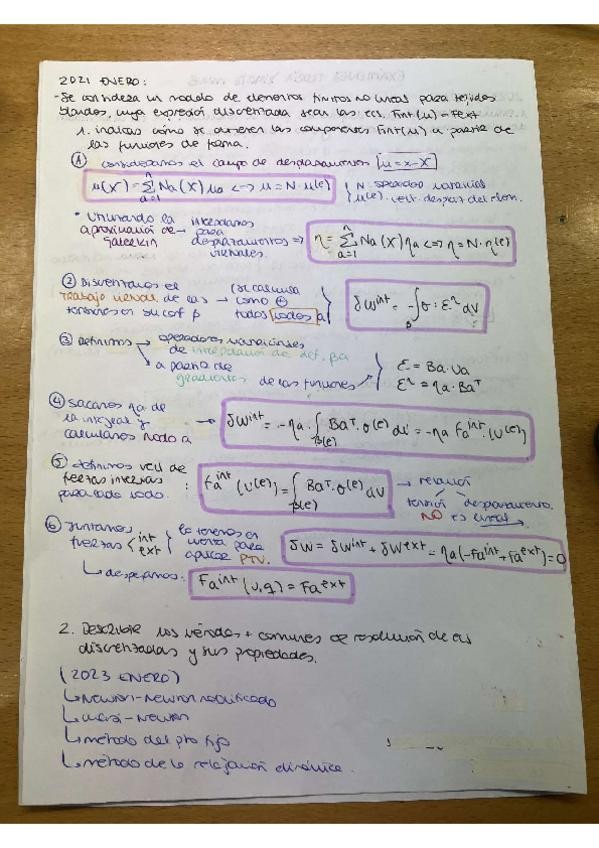 2021 ENERO:
- Se considera un modelo de elementos finitos no lineal para tejidos
blandos, cuya expresión discretizada sean las ecs. Fint(u) = Fext
1. indicar cómo se obtienen las componentes Fint(u) a partir de
las funciones de forma.
① consideramos el campo de desplazamientos u = x - X
u(X) = Σ_{a=1}^{n} Na(X) ua <-> u = N·u(e) { N:
u(e): vect. despaz del elem.
• Utilizando la aproximación de Galerkin → interpolamos para desplazamientos virtuales ⇒ η = Σ_{a=1}^{n} Na(X) ηa <-> η = N·η(e)
② Discretizamos el trabajo virtual de las tensiones en sucof β → (se calcula como ⊕ todos nodos a) δW^int = -∫_β σ : ε^η dV
③ Definimos → operadores variacionales de interpolación de def. Ba
→ a partir de gradientes de las funciones { ε = Ba·ua
ε^η = ηa·Ba^T
④ sacamos ηa de la integral y calculamos nodo a → δW^int = -ηa·∫_{β(e)} Ba^T·σ(e) dV = -ηa Fa^int·(u(e))
⑤ definimos vect de fuerzas internas para cada nodo: Fa^int (u(e)) = ∫_{β(e)} Ba^T·σ(e) dV → relación tensión desplazamiento NO es lineal
⑥ juntamos fuerzas < int ext } lo tenemos en cuenta para aplicar PTV. δW = δW^int + δW^ext = ηa(-Fa^int + Fa^ext) = 0
↳ despejamos: Fa^int (u,q) = Fa^ext
2. Describir los métodos + comunes de resolución de ecs
discretizadas y sus propiedades.
(2023 ENERO)
↳ Newton - Newton modificado
↳ cuasi - Newton
↳ método del pto fijo
↳ método de la relajación dinámica.